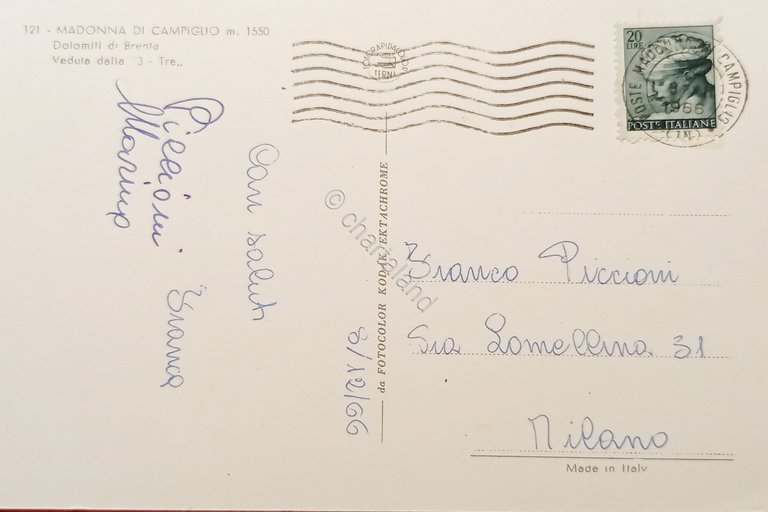 121 - MADONNA DI CAMPIGLIO m. 1550
Dolomiti di Brenta
Veduta dalla "3 - Tre"
20
LIRE
POSTE ITALIANE
POSTE MADONNA CAMPIGLIO
1966
(TN)
TERNI
Piccioni
Marino
Cari saluti
Franca
8/12/66
da FOTOCOLOR KODAK EKTACHROME
© chartaland
Franco Piccioni
Via Lomellina 31
Milano
Made in Italy